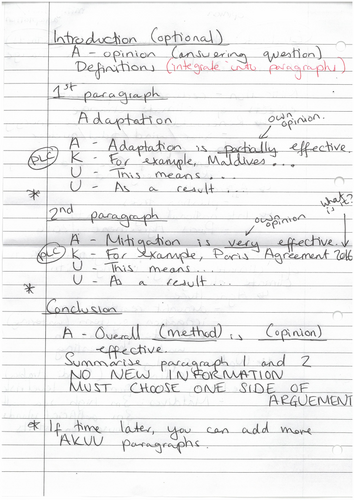 Introduction (optional)
A - opinion (answering question)
Definitions (integrate into paragraphs)
1st paragraph
Adaptation
own opinion.
A - Adaptation is partially effective.
PLC K - For example, Maldives...
U - This means...
* U - As a result...
what is?
2nd paragraph
own opinion
A - Mitigation is very effective.
PLC K - For example, Paris Agreement 2016
U - This means...
* U - As a result...
Conclusion
A - Overall (method) is (opinion)
effective.
Summarise paragraph 1 and 2
NO NEW INFORMATION
MUST CHOOSE ONE SIDE OF
ARGUEMENT
* If time later, you can add more
AKUU paragraphs.